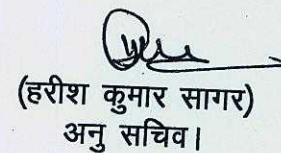 (हरीश कुमार सागर)
अनु सचिव।